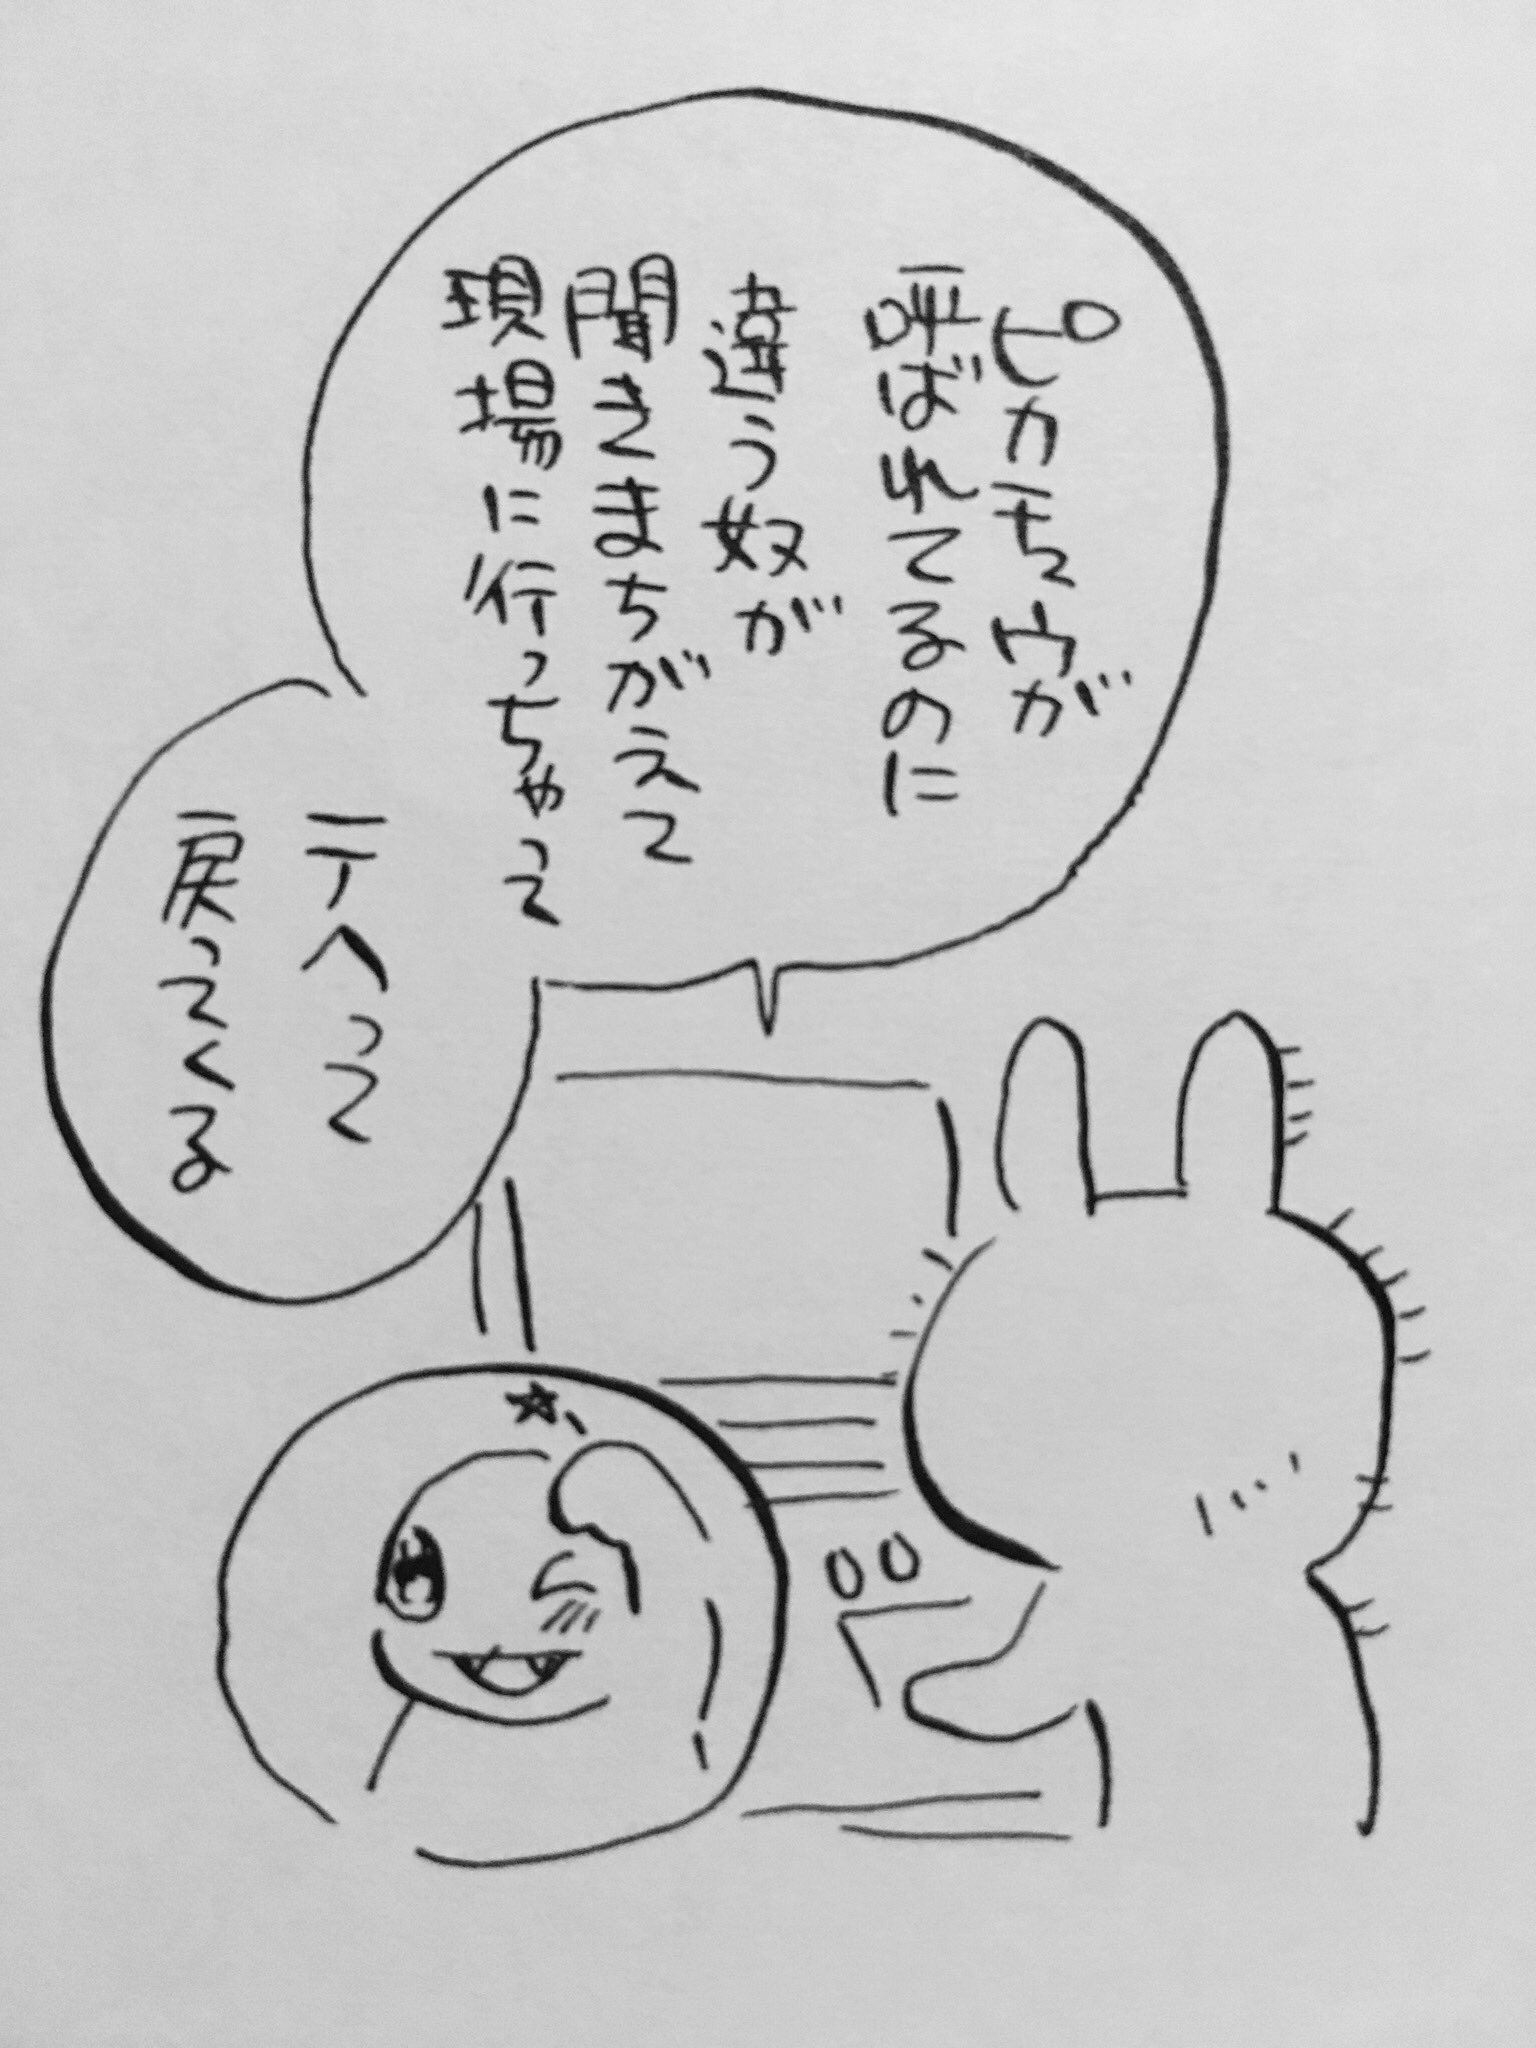 ピカチュウが
呼ばれてるのに
違う奴が
聞きまちがえて
現場に行っちゃって
テヘって
戻ってくる